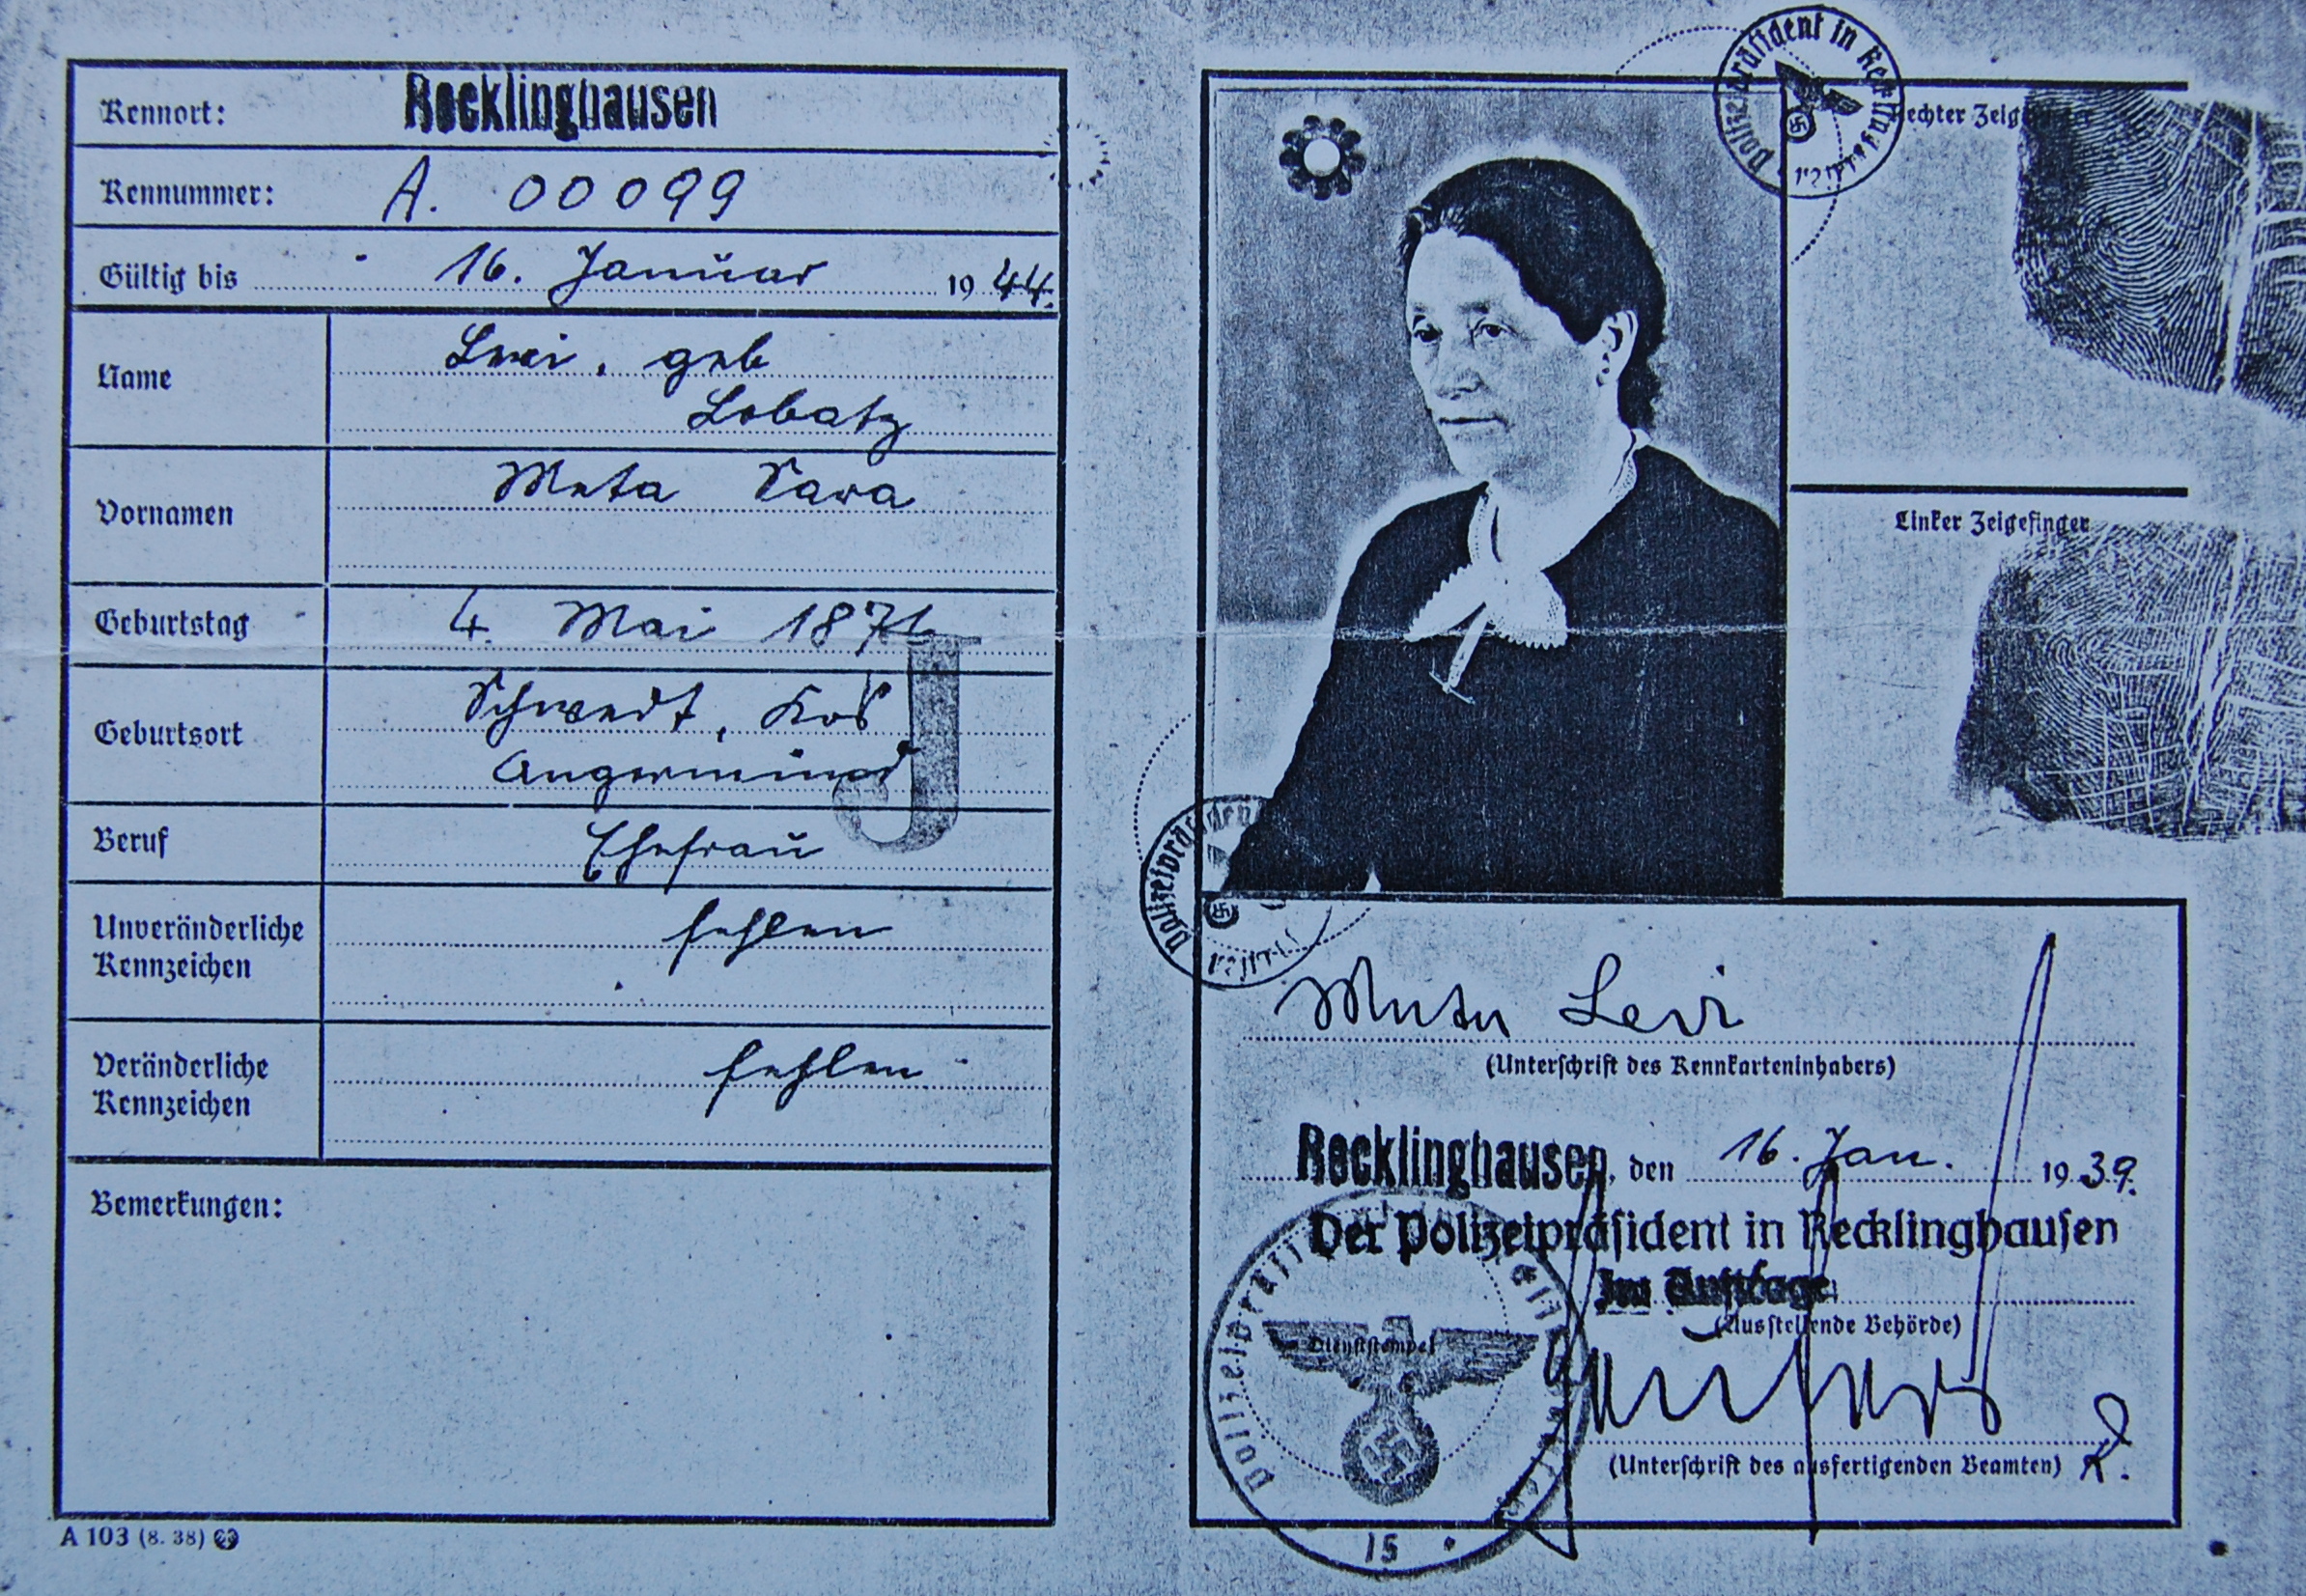 Kennort: Recklinghausen
Kennummer: A. 00099
Gültig bis 16. Januar 1944.
Name Levi, geb
Lobatz
Vornamen Meta Sara
Geburtstag 4. Mai 1871
Geburtsort Schwedt, Krs
Angermünd
J
Beruf Ehefrau
Unveränderliche
Kennzeichen fehlen
Veränderliche
Kennzeichen fehlen
Bemerkungen:
A 103 (8. 38)
Polizeipräsident in Reckling
Rechter Zeig
Linker Zeigefinger
Polizeipräsiden
Meta Levi
(Unterschrift des Kennkarteninhabers)
Recklinghausen, den 16. Jan. 1939.
Der Polizeipräsident in Recklinghausen
Im Auftrage
(Ausstellende Behörde)
Dienststempel
(Unterschrift des ausfertigenden Beamten)
15